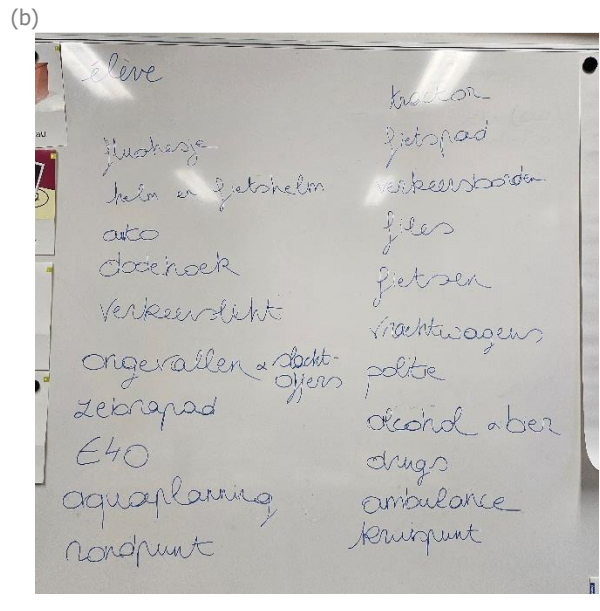 (b)
élève
fluohesje
helm en fietshelm
auto
dodehoek
verkeerslicht
ongevallen & slacht-
offers
zebrapad
E40
aquaplanning
rondpunt
tractor
fietspad
verkeersborden
files
fietsen
vrachtwagens
politie
alcohol &
drugs
ambulance
kruispunt
au